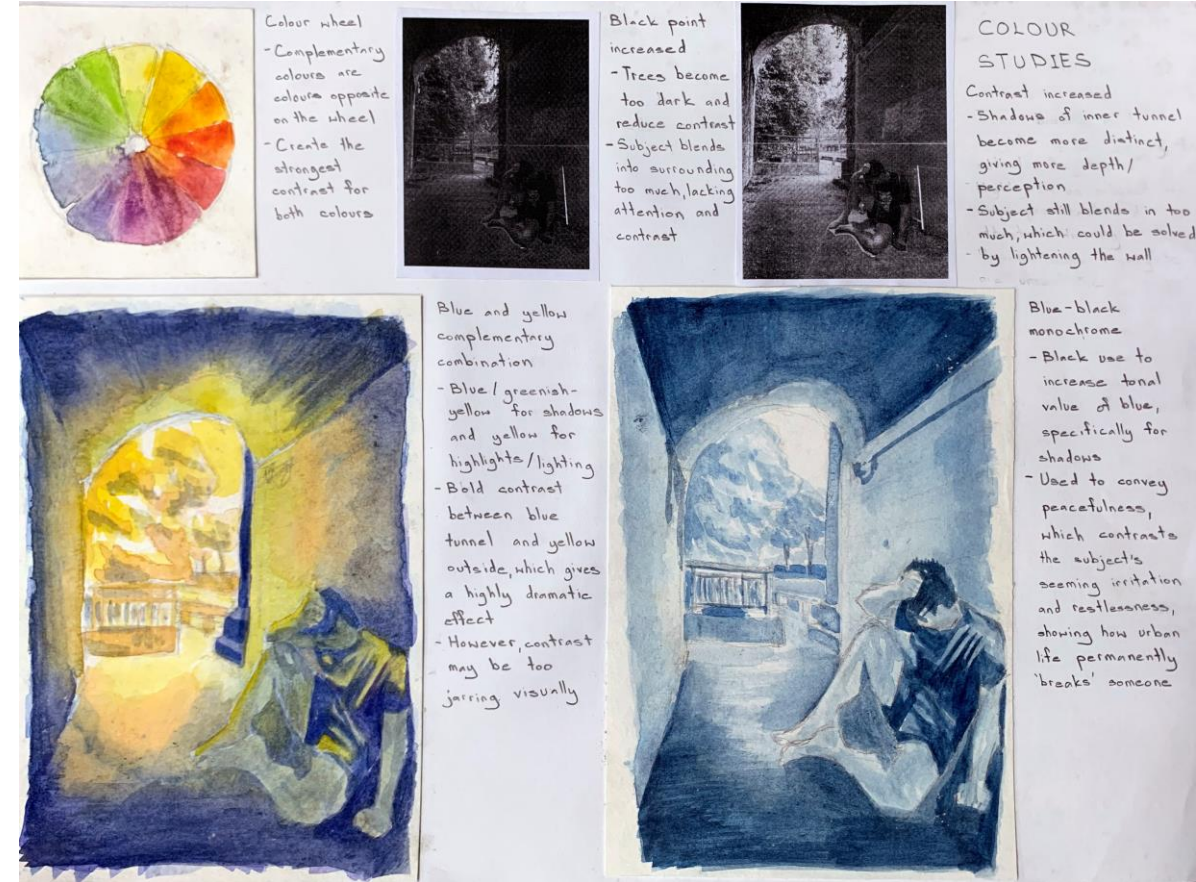 Colour wheel
- Complementary
colours are
colours opposite
on the wheel
- Create the
strongest
contrast for
both colours
Black point
increased
- Trees become
too dark and
reduce contrast
- Subject blends
into surrounding
too much, lacking
attention and
contrast
COLOUR
STUDIES
Contrast increased
- Shadows of inner tunnel
become more distinct,
giving more depth/
perception
- Subject still blends in too
much, which could be solved
by lightening the wall
Blue and yellow
complementary
combination
- Blue / greenish-
yellow for shadows
and yellow for
highlights/lighting
- Bold contrast
between blue
tunnel and yellow
outside, which gives
a highly dramatic
effect
- However, contrast
may be too
jarring visually
Blue-black
monochrome
- Black use to
increase tonal
value of blue,
specifically for
shadows
- Used to convey
peacefulness,
which contrasts
the subject's
seeming irritation
and restlessness,
showing how urban
life permanently
'breaks' someone